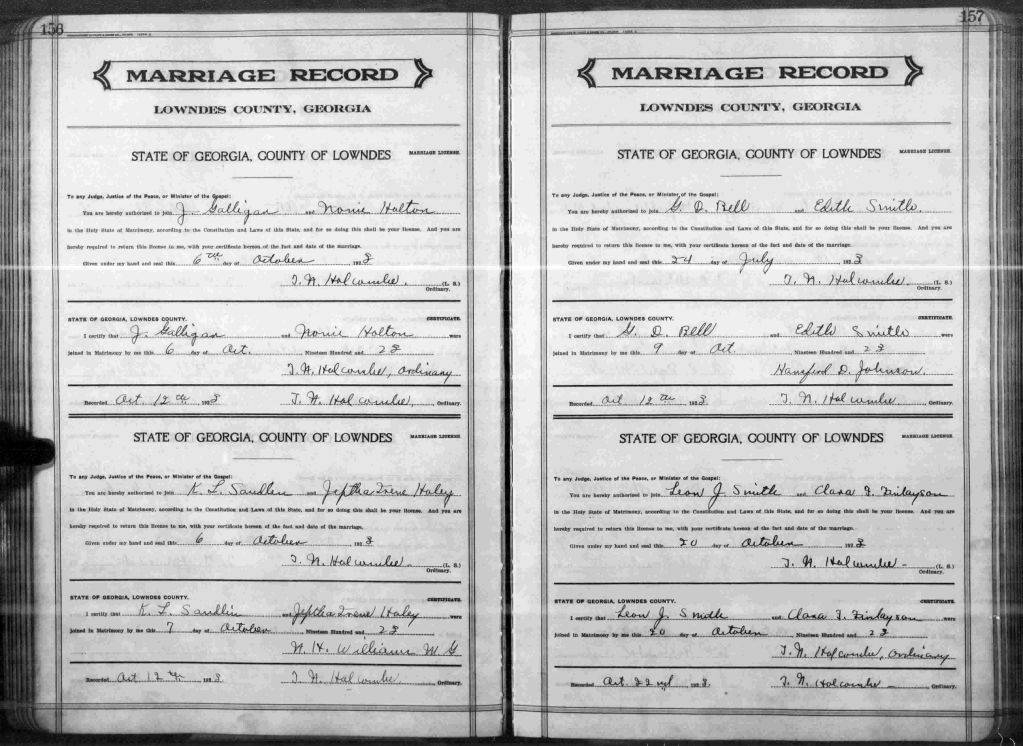 156
MARRIAGE RECORD
LOWNDES COUNTY, GEORGIA
STATE OF GEORGIA, COUNTY OF LOWNDES
MARRIAGE LICENSE.
To any Judge, Justice of the Peace, or Minister of the Gospel:
You are hereby authorized to join J. Galligan and Nonie Holton
in the Holy State of Matrimony, according to the Constitution and Laws of this State, and for so doing this shall be your license. And you are
hereby required to return this license to me, with your certificate hereon of the fact and date of the marriage.
Given under my hand and seal this 6th day of October 1923
T. N. Holcombe. (L. S.)
Ordinary.
STATE OF GEORGIA, LOWNDES COUNTY.
CERTIFICATE.
I certify that J. Galligan and Nonie Holton were
joined in Matrimony by me this 6 day of Oct. Nineteen Hundred and 23
T. N. Holcombe, Ordinary
Recorded Oct 12th 1923 T. N. Holcombe, Ordinary.
STATE OF GEORGIA, COUNTY OF LOWNDES
MARRIAGE LICENSE.
To any Judge, Justice of the Peace, or Minister of the Gospel:
You are hereby authorized to join K. L. Sandlin and Jeptha Irene Haley
in the Holy State of Matrimony, according to the Constitution and Laws of this State, and for so doing this shall be your license. And you are
hereby required to return this license to me, with your certificate hereon of the fact and date of the marriage.
Given under my hand and seal this 6 day of October 1923
T. N. Holcombe (L. S.)
Ordinary.
STATE OF GEORGIA, LOWNDES COUNTY.
CERTIFICATE.
I certify that K. L. Sandlin and Jeptha Irene Haley were
joined in Matrimony by me this 7 day of October Nineteen Hundred and 23
N. H. Williams M. G
Recorded Oct 12th 1923 T. N. Holcombe. Ordinary.
157
MARRIAGE RECORD
LOWNDES COUNTY, GEORGIA
STATE OF GEORGIA, COUNTY OF LOWNDES
MARRIAGE LICENSE.
To any Judge, Justice of the Peace, or Minister of the Gospel:
You are hereby authorized to join G. D. Bell and Edith Smith.
in the Holy State of Matrimony, according to the Constitution and Laws of this State, and for so doing this shall be your license. And you are
hereby required to return this license to me, with your certificate hereon of the fact and date of the marriage.
Given under my hand and seal this 24 day of July 1923
T. N. Holcombe (L. S.)
Ordinary.
STATE OF GEORGIA, LOWNDES COUNTY.
CERTIFICATE.
I certify that G. D. Bell and Edith Smith were
joined in Matrimony by me this 9 day of Oct. Nineteen Hundred and 23
Hansford D. Johnson.
Recorded Oct 12th 1923 T. N. Holcombe. Ordinary.
STATE OF GEORGIA, COUNTY OF LOWNDES
MARRIAGE LICENSE.
To any Judge, Justice of the Peace, or Minister of the Gospel:
You are hereby authorized to join Leon J. Smith and Clara I. Finlayson
in the Holy State of Matrimony, according to the Constitution and Laws of this State, and for so doing this shall be your license. And you are
hereby required to return this license to me, with your certificate hereon of the fact and date of the marriage.
Given under my hand and seal this 20 day of October 1923
T. N. Holcombe (L. S.)
Ordinary.
STATE OF GEORGIA, LOWNDES COUNTY.
CERTIFICATE.
I certify that Leon J. Smith and Clara I. Finlayson were
joined in Matrimony by me this 20 day of October Nineteen Hundred and 23
T. N. Holcombe, Ordinary
Recorded Oct. 22nd 1923. T. N. Holcombe Ordinary.